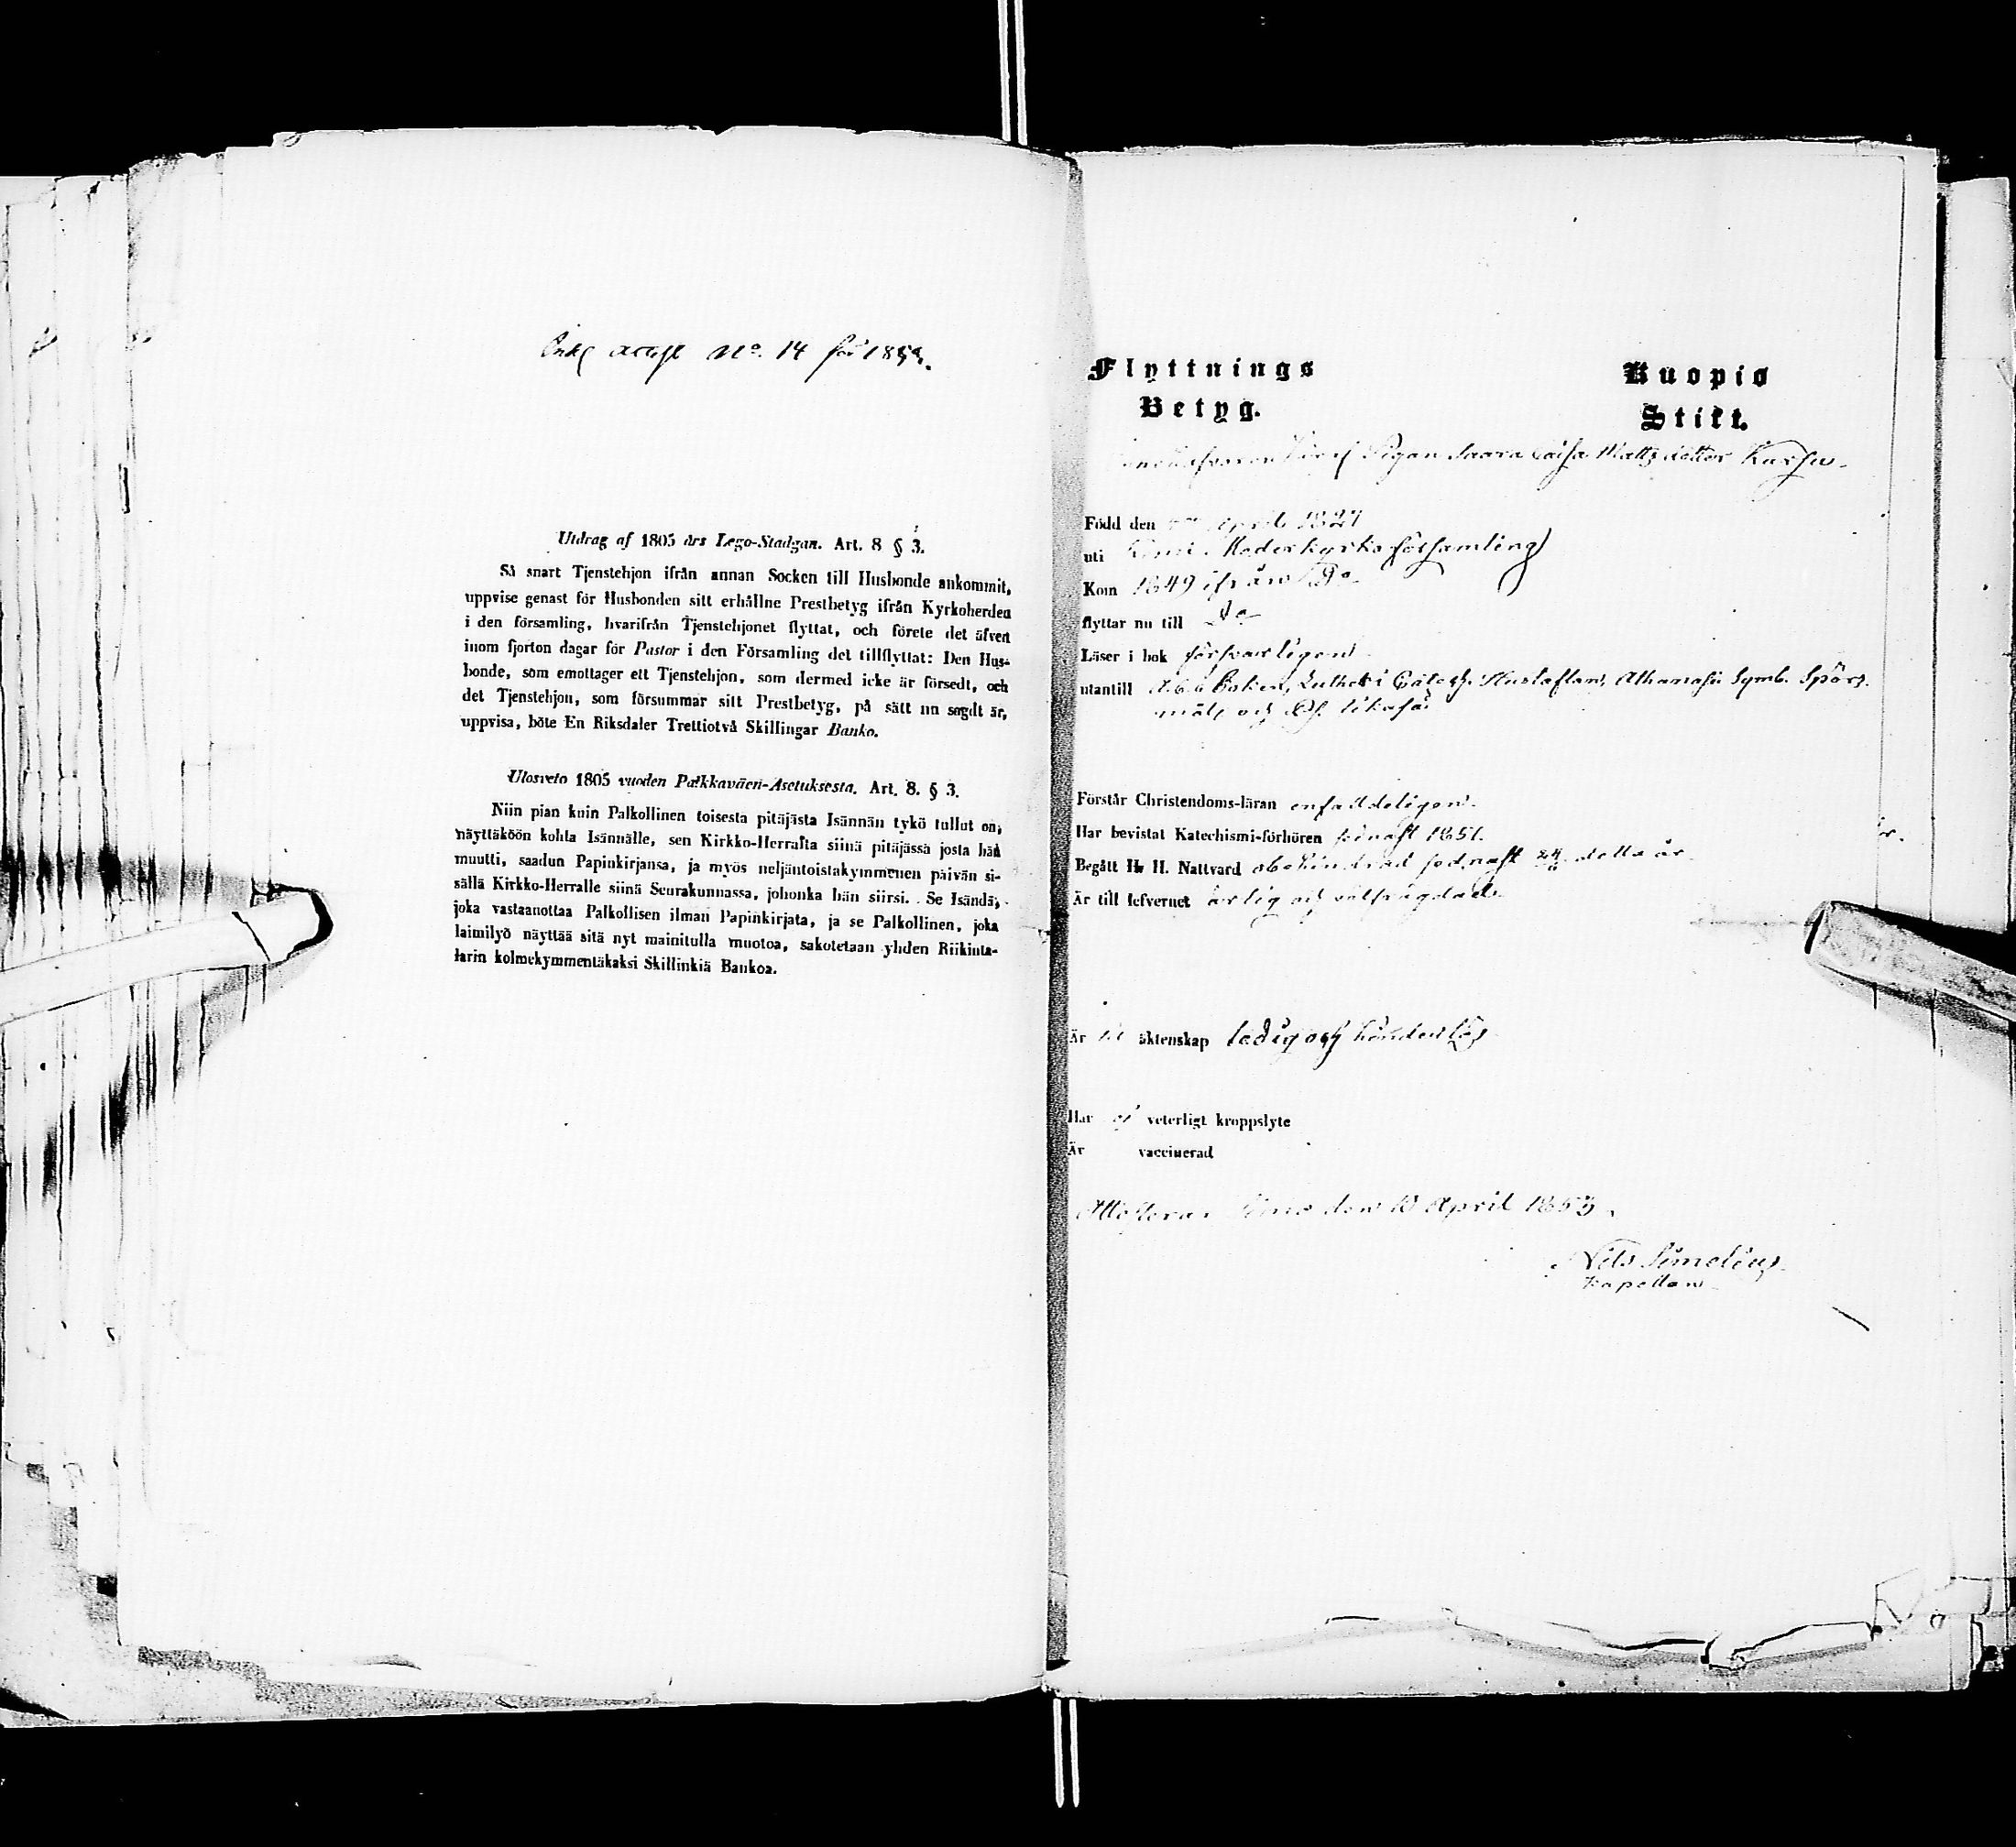 No. 14 för 1853.
Utdrag af 1805 års Lego-Stadgan. Art. 8 § 3.
Så snart Tjenstehjon ifrån annan Socken till Husbonde ankommit,
uppvise genast för Husbonden sitt erhållne Prestbetyg ifrån Kyrkoherden
i den församling, hvarifrån Tjenstehjonet flyttat, och förete det äfven
inom fjorton dagar för Pastor i den Församling det tillflyttat: Den Hus-
bonde, som emottager ett Tjenstehjon, som dermed icke är försedt, och
det Tjenstehjon, som försummar sitt Prestbetyg, på sätt nu sagdt är,
uppvisa, böte En Riksdaler Trettiotvå Skillingar Banko.
Ulosveto 1805 vuoden Palkkaväen-Asetuksesta. Art. 8. § 3.
Niin pian kuin Palkollinen toisesta pitäjästä Isännän tykö tullut on,
näyttäköön kohta Isännälle, sen Kirkko-Herralta siinä pitäjässä josta hän
muutti, saadun Papinkirjansa, ja myös neljäntoistakymmenen päivän si-
sällä Kirkko-Herralle siinä Seurakunnassa, johonka hän siirsi. Se Isändä,
joka vastaanottaa Palkollisen ilman Papinkirjata, ja se Palkollinen, joka
laimilyö näyttää sitä nyt mainitulla muotoa, sakotetaan yhden Riikinta-
larin kolmekymmentäkaksi Skillinkiä Bankoa.
Flyttnings Kuopio
Betyg. Stift.
Pigan Saara Caisa Matts dotter Kursu.
Född den April 1827
uti Kemi Moderkyrko församling
Kom 1849 ifrån Do
flyttar nu till Do
Läser i bok försvarligen
utantill Abc Boken, Lutheri Catech. Hustaflan, Athanasii Symb. Spörs-
mål, och Ps. likaså
Förstår Christendoms-läran enfaldeligen.
Har bevistat Katechismi-förhören sednast 1851.
Begått H. H. Nattvard obehindrad sednast detta år.
Är till lefvernet ärlig och välfrägdad.
Är till äktenskap ledig och hinderlös
Har ej veterligt kroppslyte
Är vaccinerad
Attesterar Simo den 13 April 1853.
Nils Simelius
Kapellan